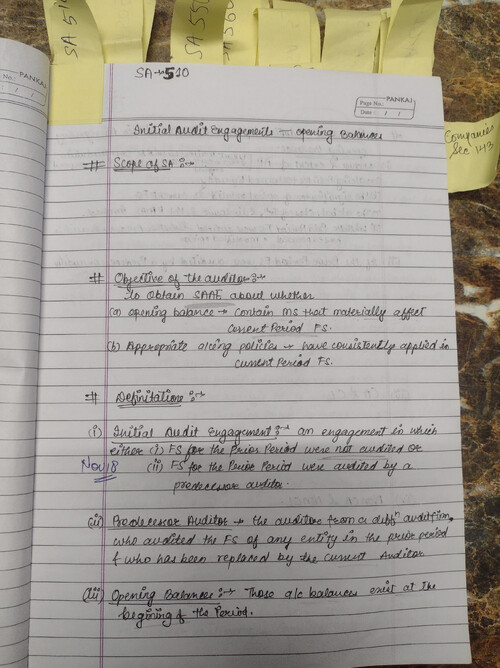 SA 510
SA 550
SA 560
PANKAJ
Page No.:
/ /
SA - 510
PANKAJ
Page No.:
Date: / /
Initial Audit Engagements - opening Balances
Companies
Sec 143
# Scope of SA :-
# Objective of the auditor :-
To Obtain SAAE about whether
(a) opening balance → contain MS that materially affect
Current Period FS.
(b) Appropriate a/cing policies → have consistently applied in
current Period FS.
# Definitions :-
(i) Initial Audit Engagement :- an engagement in which
either (i) FS for the Prior Period were not audited or
Nov 18 (ii) FS for the Prior Period were audited by a
predecessor auditor.
(ii) Predecessor Auditor → the auditor from a diffn audit firm,
who audited the FS of any entity in the prior period
& who has been replaced by the current Auditor
(iii) Opening Balances :- Those a/c balances exist at the
begining of the Period.